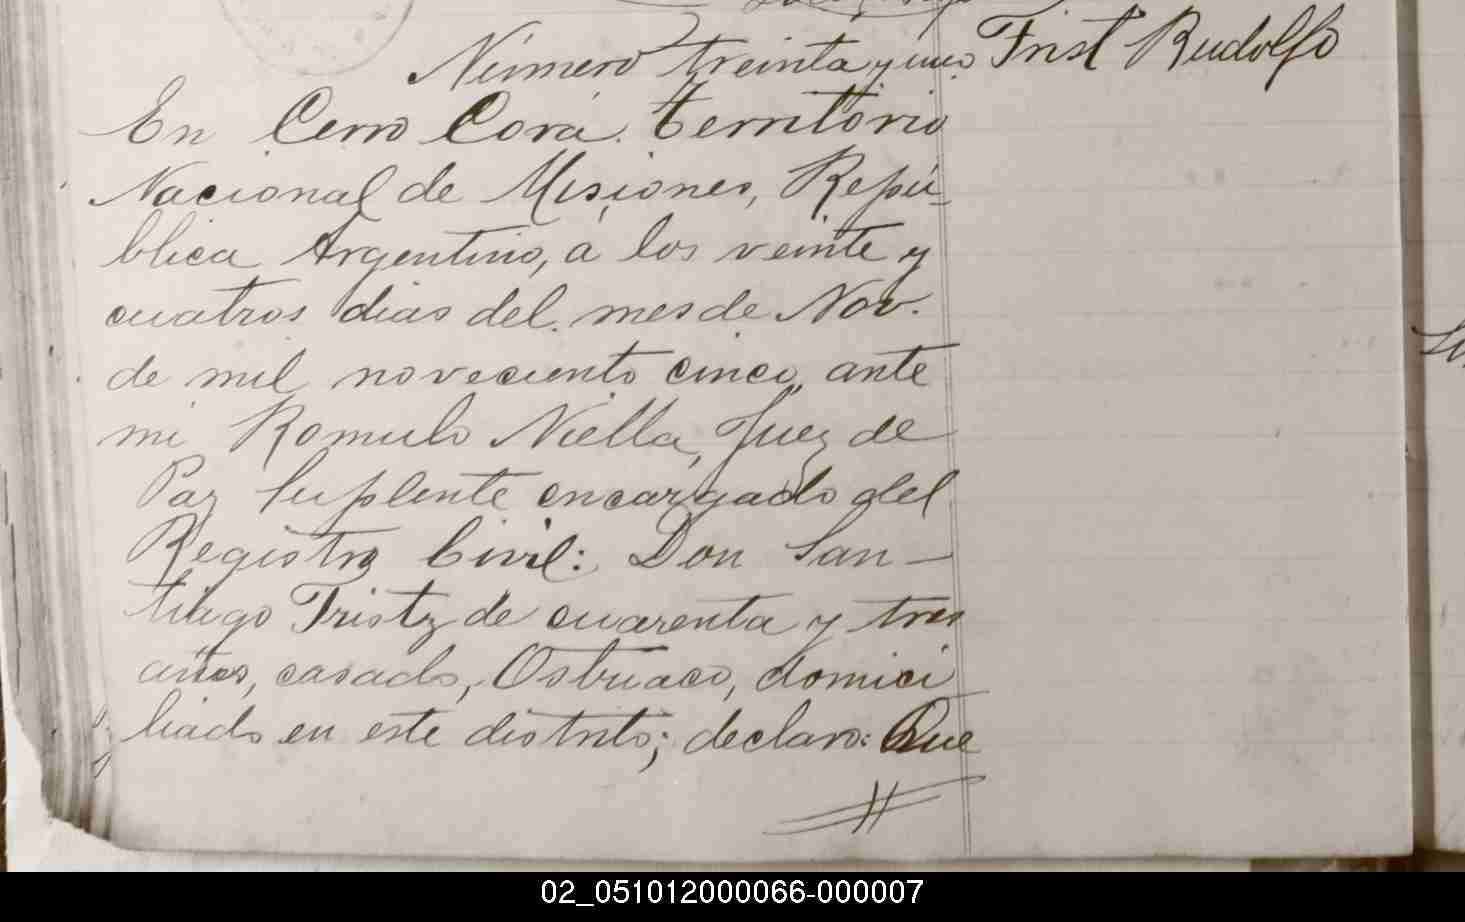 Número treinta y uno Trist Rudolfo
En Cerro Corá Territorio
Nacional de Misiones, Repú-
blica Argentino, á los veinte y
cuatros dias del mes de Nov.
de mil noveciento cinco, ante
mi Romulo Niella, Juez de
Paz Suplente encargado del
Registro Civil: Don San-
tiago Tristz de cuarenta y tres
años, casado, Ostriaco, domici
liado en este distrito; declaro: Que
02_051012000066-000007